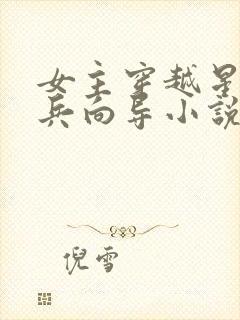 女主穿越星
兵向导小说
倪雪